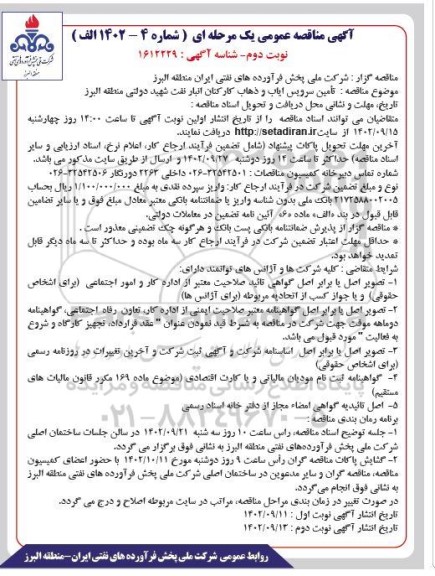 آگهی مناقصه عمومی یک مرحله ای ( شماره ۴ – ۱۴۰۲ الف )
نوبت دوم- شناسه آگهی : ۱۶۱۲۲۲۹
مناقصه گزار : شرکت ملی پخش فرآورده های نفتی ایران منطقه البرز
موضوع مناقصه : تأمین سرویس ایاب و ذهاب کارکنان انبار نفت شهید دولتی منطقه البرز
تاریخ، مهلت و نشانی محل دریافت و تحویل اسناد مناقصه :
متقاضیان می توانند اسناد مناقصه را از تاریخ انتشار اولین نوبت آگهی تا ساعت ۱۴:۰۰ روز چهارشنبه
۱۴۰۲/۰۹/۱۵ از سایت http://setadiran.ir دریافت نمایند.
آخرین مهلت تحویل پاکات پیشنهاد (شامل تضمین فرآیند ارجاع کار، اعلام نرخ، اسناد ارزیابی و سایر
اسناد مناقصه) حداکثر تا ساعت ۱۴ روز دوشنبه ۱۴۰۲/۰۹/۲۷ و ارسال از طریق سایت مذکور می باشد.
شماره تماس دبیرخانه کمیسیون مناقصات : ۳۲۵۴۲۵۰۱-۰۲۶ داخلی ۲۲۶۳ دورنگار ۳۲۵۴۲۵۰۶-۰۲۶
نوع و مبلغ تضمین شرکت در فرآیند ارجاع کار: واریز سپرده نقدی به مبلغ ۱/۱۰۰/۰۰۰/۰۰۰ ریال بحساب
۲۱۷۲۵۸۸۰۰۲۰۰۵ بانک ملی بدون شناسه واریز یا ضمانتنامه بانکی معتبر معادل مبلغ فوق و یا سایر تضامین
قابل قبول در بند «الف» ماده «۶» آئین نامه تضمین در معاملات دولتی.
* مناقصه گزار از پذیرش ضمانتنامه بانکی پست بانک و هرگونه چک تضمینی معذور است .
* حداقل مهلت اعتبار تضمین شرکت در فرآیند ارجاع کار سه ماه بوده و حداکثر تا سه ماه دیگر قابل
تمدید خواهد بود.
شرایط متقاضی : کلیه شرکت ها و آژانس های توانمند دارای:
۱- تصویر اصل یا برابر اصل گواهی تائید صلاحیت معتبر از اداره کار و امور اجتماعی (برای اشخاص
حقوقی) و یا جواز کسب از اتحادیه مربوطه (برای آژانس ها)
۲- تصویر اصل یا برابر اصل گواهینامه معتبر صلاحیت ایمنی از اداره کار، تعاون رفاه اجتماعی، گواهینامه
دوماهه موقت جهت شرکت در مناقصه به شرط قید نمودن عنوان " عقد قرارداد، تجهیز کارگاه و شروع
به فعالیت " مورد قبول می باشد.
۳- تصویر اصل یا برابر اصل اساسنامه شرکت و آگهی ثبت شرکت و آخرین تغییرات در روزنامه رسمی
(برای اشخاص حقوقی)
۴- گواهینامه ثبت نام مودیان مالیاتی و یا کارت اقتصادی (موضوع ماده ۱۶۹ مکرر قانون مالیات های
مستقیم)
۵- اصل تائیدیه گواهی امضاء مجاز از دفتر خانه اسناد رسمی
برنامه زمان بندی مناقصه :
۱- جلسه توضیح اسناد مناقصه، راس ساعت ۱۰ روز سه شنبه ۱۴۰۲/۰۹/۲۱ در سالن جلسات ساختمان اصلی
شرکت ملی پخش فرآورده‌های نفتی منطقه البرز به نشانی فوق برگزار می گردد.
۲- گشایش پاکات مناقصه گران راس ساعت ۹ روز دوشنبه مورخ ۱۴۰۲/۱۰/۱۱ با حضور اعضای کمیسیون
مناقصه، مناقصه گران و سایر مدعوین در ساختمان اصلی شرکت ملی پخش فرآورده های نفتی - منطقه البرز
به نشانی فوق انجام می‌گردد.
در صورت تغییر در زمان بندی مراحل مناقصه، مراتب در سایت مربوطه اصلاح و درج می گردد.
تاریخ انتشار آگهی نوبت اول : ۱۴۰۲/۰۹/۱۱
تاریخ انتشار آگهی نوبت دوم : ۱۴۰۲/۰۹/۱۳
روابط عمومی شرکت ملی پخش فرآورده های نفتی ایران -منطقه البرز